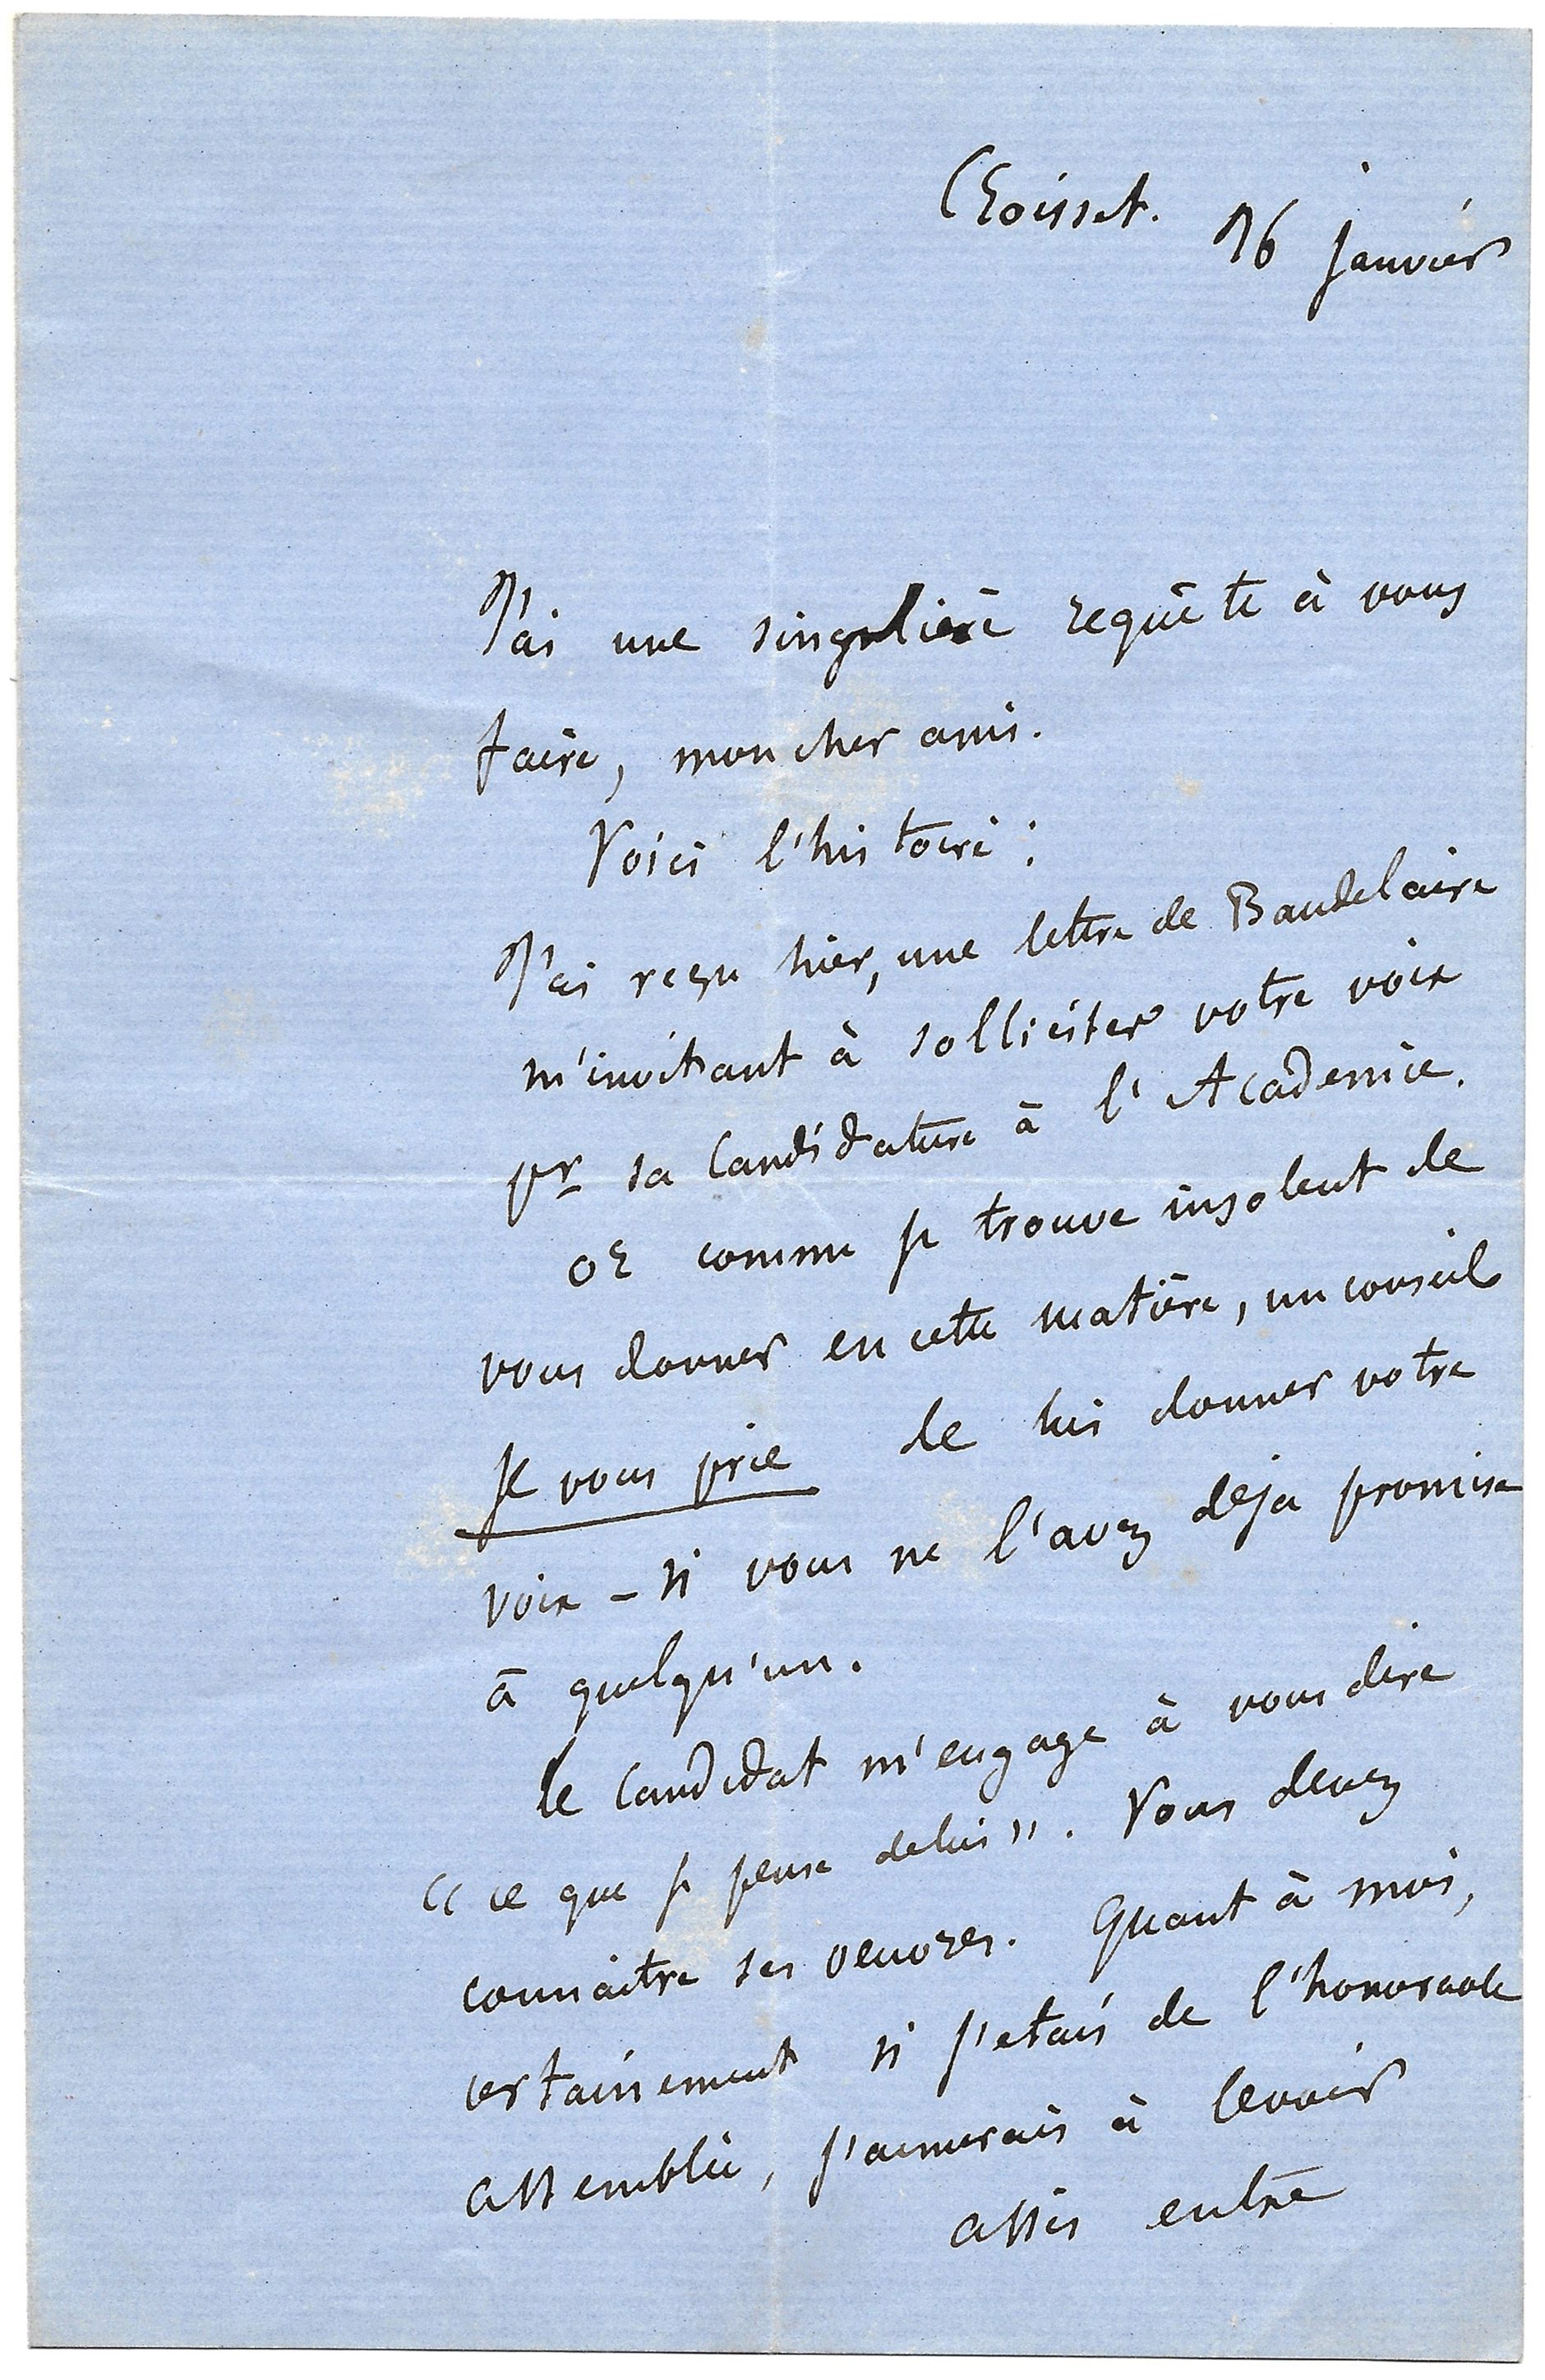 Croisset. 26 janvier
J'ai une singulière requête à vous
faire, mon cher ami.
Voici l'histoire :
J'ai reçu hier, une lettre de Baudelaire
m'invitant à solliciter votre voix
pr sa Candidature à l'Academie.
or comme je trouve insolent de
vous donner en cette matière, un conseil
je vous prie de lui donner votre
voix – si vous ne l'avez deja promise
à quelqu'un.
le Candidat m'engage à vous dire
« ce que je pense de lui ». Vous devez
connaitre ses oeuvres. Quant à moi,
certainement si j'etais de l'honorable
assemblée, j'aimerais à le voir
assis entre